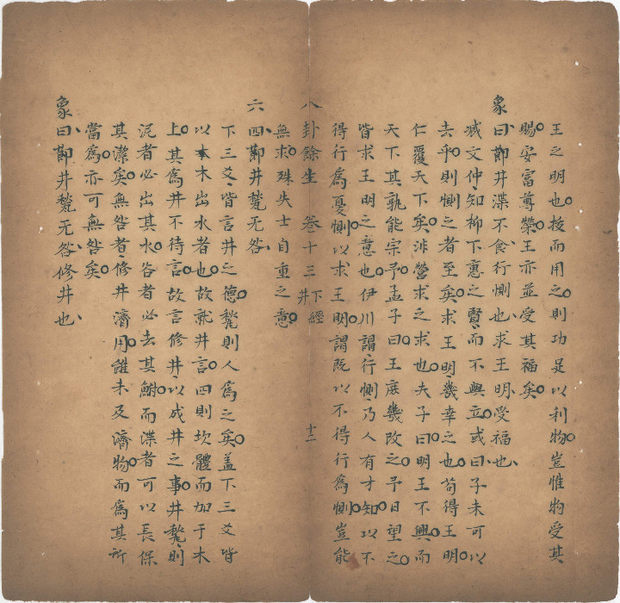 王之明也挍而用之則功足以利物豈惟物受其
賜安富尊榮王亦並受其福矣
象曰鄿井渫不食行惻也求王明受福也
臧文仲知柳下惠之賢而不與立或曰子未可以
去乎則惻之者至矣求王明幾幸之也苟得王明
仁覆天下矣非營求之求也夫子曰明王不興而
天下其孰能宗予孟子曰王庶幾改之予日望之
皆求王明之意也伊川謂行惻乃人有才知以不
得行為憂惻以求王明謂既以不得行為惻豈能
八卦餘生 卷十三 下經 井 十二
無求殊失士自重之意
六四鄿井甃无咎
下三爻皆言井之德甃則人為之矣蓋下三爻皆
以木出水者也故就井言四則坎體而加于木
上其為井不待言故言修井以成井之事井甃則
泥者必出其水谷者必去其鮒而渫者可以長保
其潔矣無咎者修井濟用雖未及濟物而為其所
當為亦可無咎矣
象曰鄿井甃无咎修井也